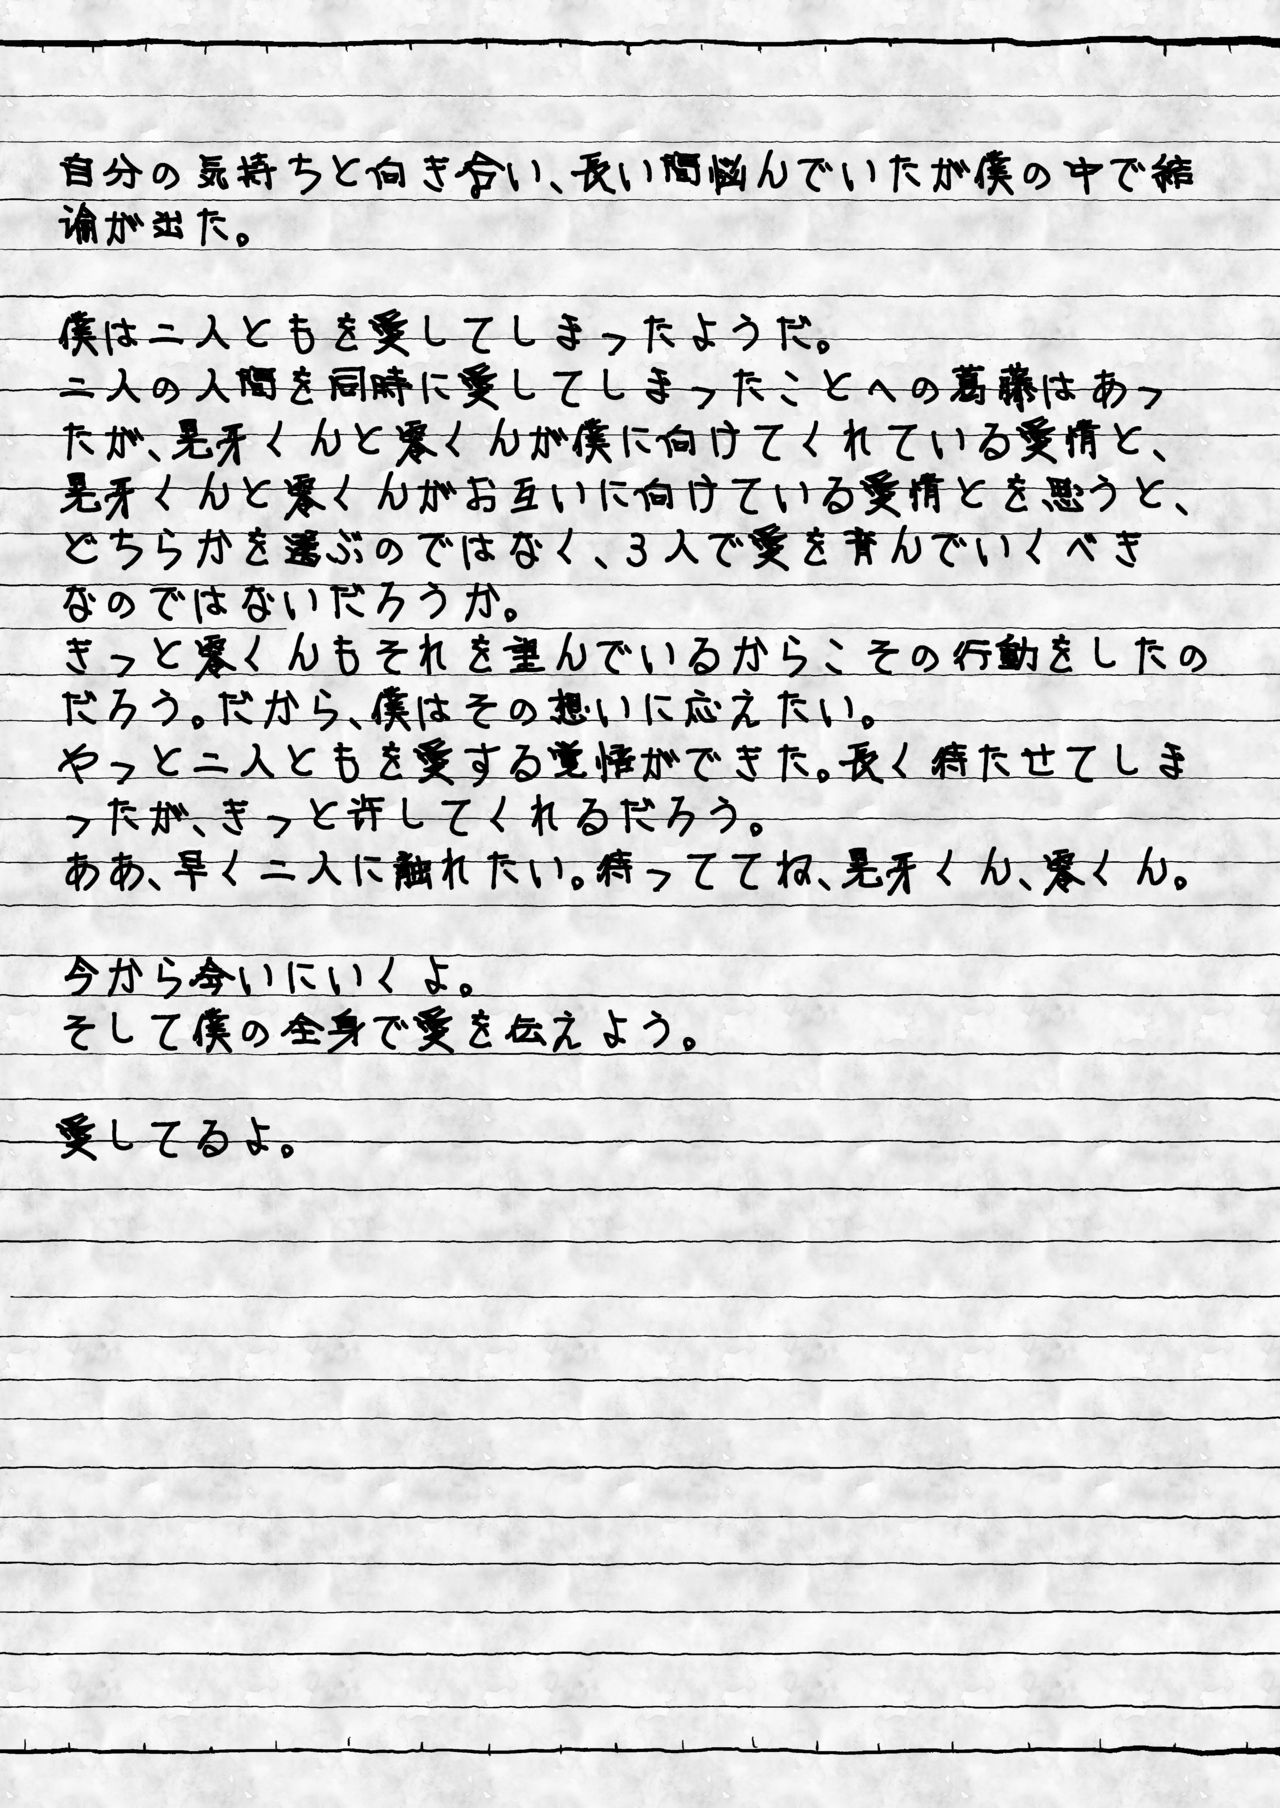 自分の気持ちと向き合い、長い間悩んでいたが僕の中で結
論が出た。
僕は二人ともを愛してしまったようだ。
二人の人間を同時に愛してしまったことへの葛藤はあっ
たが、晃牙くんと零くんが僕に向けてくれている愛情と、
晃牙くんと零くんがお互いに向けている愛情とを思うと、
どちらかを選ぶのではなく、3人で愛を育んでいくべき
なのではないだろうか。
きっと零くんもそれを望んでいるからこその行動をしたの
だろう。だから、僕はその想いに応えたい。
やっと二人ともを愛する覚悟ができた。長く待たせてしま
ったが、きっと許してくれるだろう。
ああ、早く二人に触れたい。待っててね、晃牙くん、零くん。
今から会いにいくよ。
そして僕の全身で愛を伝えよう。
愛してるよ。